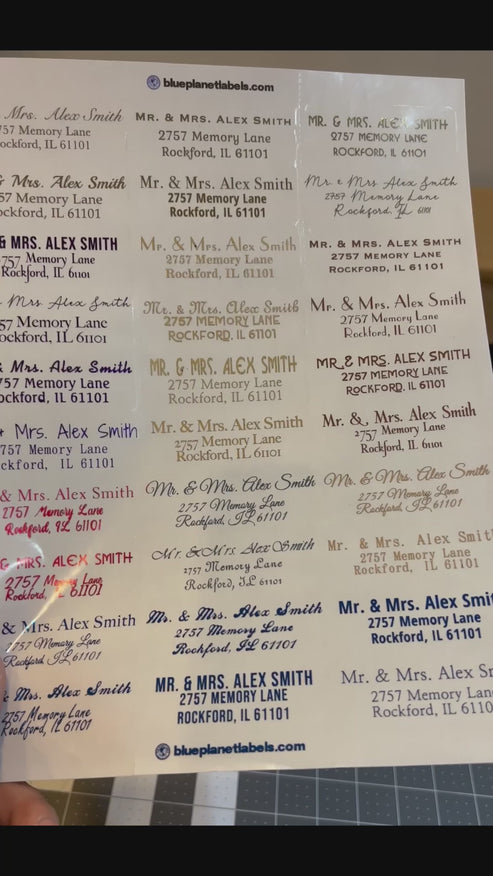 blueplanetlabels.com
Mrs. Alex Smith
757 Memory Lane
ockford, IL 61101
Mr. & Mrs. Alex Smith
2757 Memory Lane
Rockford, IL 61101
Mr. & Mrs. Alex Smith
2757 Memory Lane
Rockford, IL 61101
& Mrs. Alex Smith
757 Memory Lane
ckford, IL 61101
Mr. & Mrs. Alex Smith
2757 Memory Lane
Rockford, IL 61101
Mr. & Mrs Alex Smith
2757 Memory Lane
Rockford, IL 61101
& MRS. ALEX SMITH
757 Memory Lane
Rockford, IL 61101
Mr. & Mrs. Alex Smith
2757 Memory Lane
Rockford, IL 61101
Mr. & Mrs. Alex Smith
2757 Memory Lane
Rockford, IL 61101
Mrs Alex Smith
57 Memory Lane
ockford, IL 61101
Mr. & Mrs. Alex Smith
2757 MEMORY LANE
ROCKFORD, IL 61101
Mr. & Mrs. Alex Smith
2757 Memory Lane
Rockford, IL 61101
& Mrs. Alex Smith
757 Memory Lane
ockford, IL 61101
MR. & MRS. ALEX SMITH
2757 Memory Lane
Rockford, IL 61101
MR. & MRS. ALEX SMITH
2757 MEMORY LANE
ROCKFORD, IL 61101
+ Mrs. Alex Smith
757 Memory Lane
ckford, IL 61101
Mr. & Mrs. Alex Smith
2757 Memory Lane
Rockford, IL 61101
Mr. & Mrs. Alex Smith
2757 Memory Lane
Rockford, IL 61101
& Mrs. Alex Smith
2757 Memory Lane
Rockford, IL 61101
Mr. & Mrs. Alex Smith
2757 Memory Lane
Rockford, IL 61101
Mr. & Mrs. Alex Smith
2757 Memory Lane
Rockford, IL 61101
& MRS. ALEX SMITH
2757 Memory Lane
Rockford, IL 61101
Mr. & Mrs Alex Smith
2757 Memory Lane
Rockford, IL 61101
Mr. & Mrs. Alex Smit
2757 Memory Lane
Rockford, IL 61101
& Mrs. Alex Smith
2757 Memory Lane
Rockford IL 61101
Mr. & Mrs. Alex Smith
2757 Memory Lane
Rockford, IL 61101
Mr. & Mrs. Alex Smit
2757 Memory Lane
Rockford, IL 61101
& Mrs. Alex Smith
2757 Memory Lane
Rockford, IL 61101
MR. & MRS. ALEX SMITH
2757 MEMORY LANE
ROCKFORD, IL 61101
Mr. & Mrs. Alex S
2757 Memory Lan
Rockford, IL 6110
blueplanetlabels.com